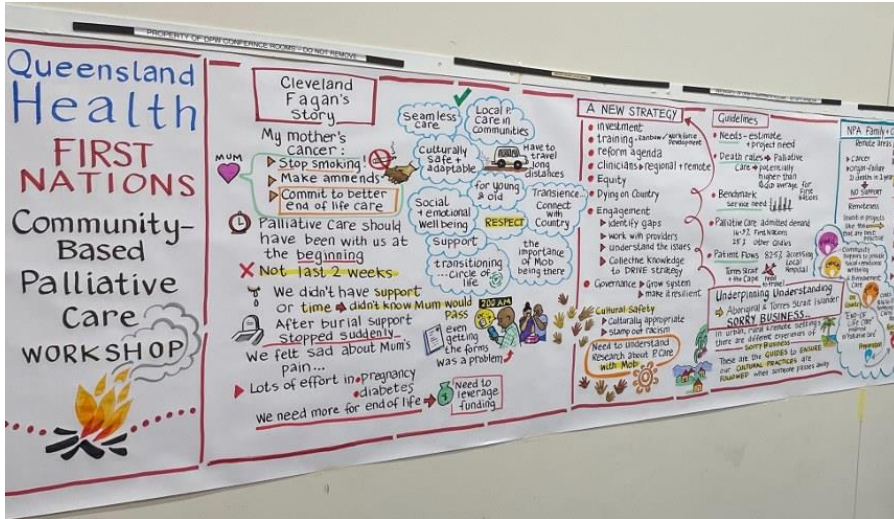 PROPERTY OF DPW CONFERNCE ROOMS - DO NOT REMOVE
Queensland
Health
FIRST
NATIONS
Community-
Based
Palliative
Care
WORKSHOP
Cleveland
Fagan's
Story
My mother's
cancer:
MUM
Stop smoking!
Make ammends
Commit to better
end of life care
Palliative Care should
have been with us at
the beginning
Not last 2 weeks
We didn't have support
or time didn't know Mum would
pass
2:00 AM
After burial support
stopped suddenly...
We felt sad about Mum's
pain...
even
getting
the forms
was a problem
Lots of effort in pregnancy
diabetes
We need more for end of life
Need to
leverage
funding
Seamless
care
Local P.
Care in
communities
Culturally
safe +
adaptable
Have to
travel
long
distances
for young
& old
Social
+ emotional
well being
RESPECT
Transience...
Connect
with
Country
Support
transitioning
...circle of
life
the
importance
of Mob
being there
A NEW STRATEGY
investment
training
workforce
Development
reform agenda
Clinicians regional + remote
Equity
Dying on Country
Engagement
identify gaps
work with providers
understand the issues
Collective knowledge
to DRIVE strategy
Governance Grow system
make it resilient
Cultural Safety
Culturally appropriate
stamp out racism
Need to understand
Research about P. Care
with Mob
Guidelines
Needs - estimate
+ project need
Death rates Palliative
Care potentially
higher than
average for
First
Nations
Benchmark
service need
Palliative Care admitted demand
First Nations
other
Patient Flows 82% accessing
Local
Hospital
Torres Strait
+ the Cape
need
to travel
Underpinning Understanding
Aboriginal & Torres Strait Islander
SORRY BUSINESS...
In urban, rural & remote settings
there are different experiences of
Sorry Business
These are the GUIDES to ENSURE
our CULTURAL PRACTICES are
FOLLOWED when someone passes away
NPA Family + C
Remote areas
cancer
organ-failure
NO SUPPORT
Remoteness
END-OF
LIFE CARE